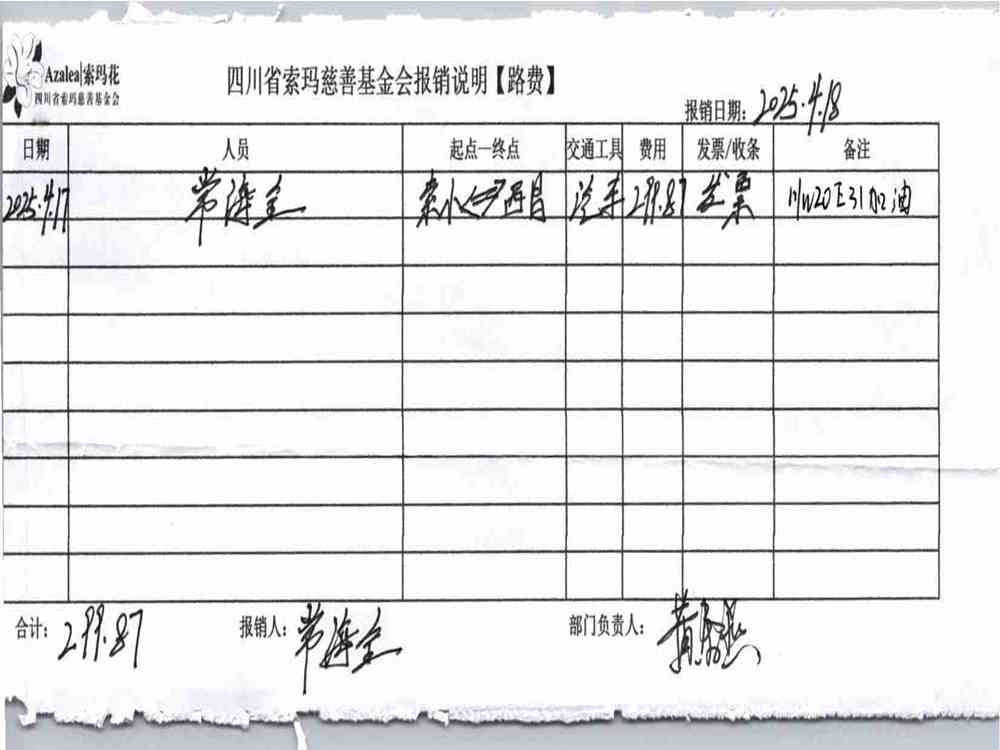 Azalea|索玛花
四川省索玛慈善基金会
四川省索玛慈善基金会报销说明【路费】
报销日期: 2025.4.18
日期 人员 起点—终点 交通工具 费用 发票/收条 备注
2025.4.17 常海金 西昌 汽车 299.87 发票 川W20E31加油
合计: 299.87 报销人: 常海金 部门负责人: 黄